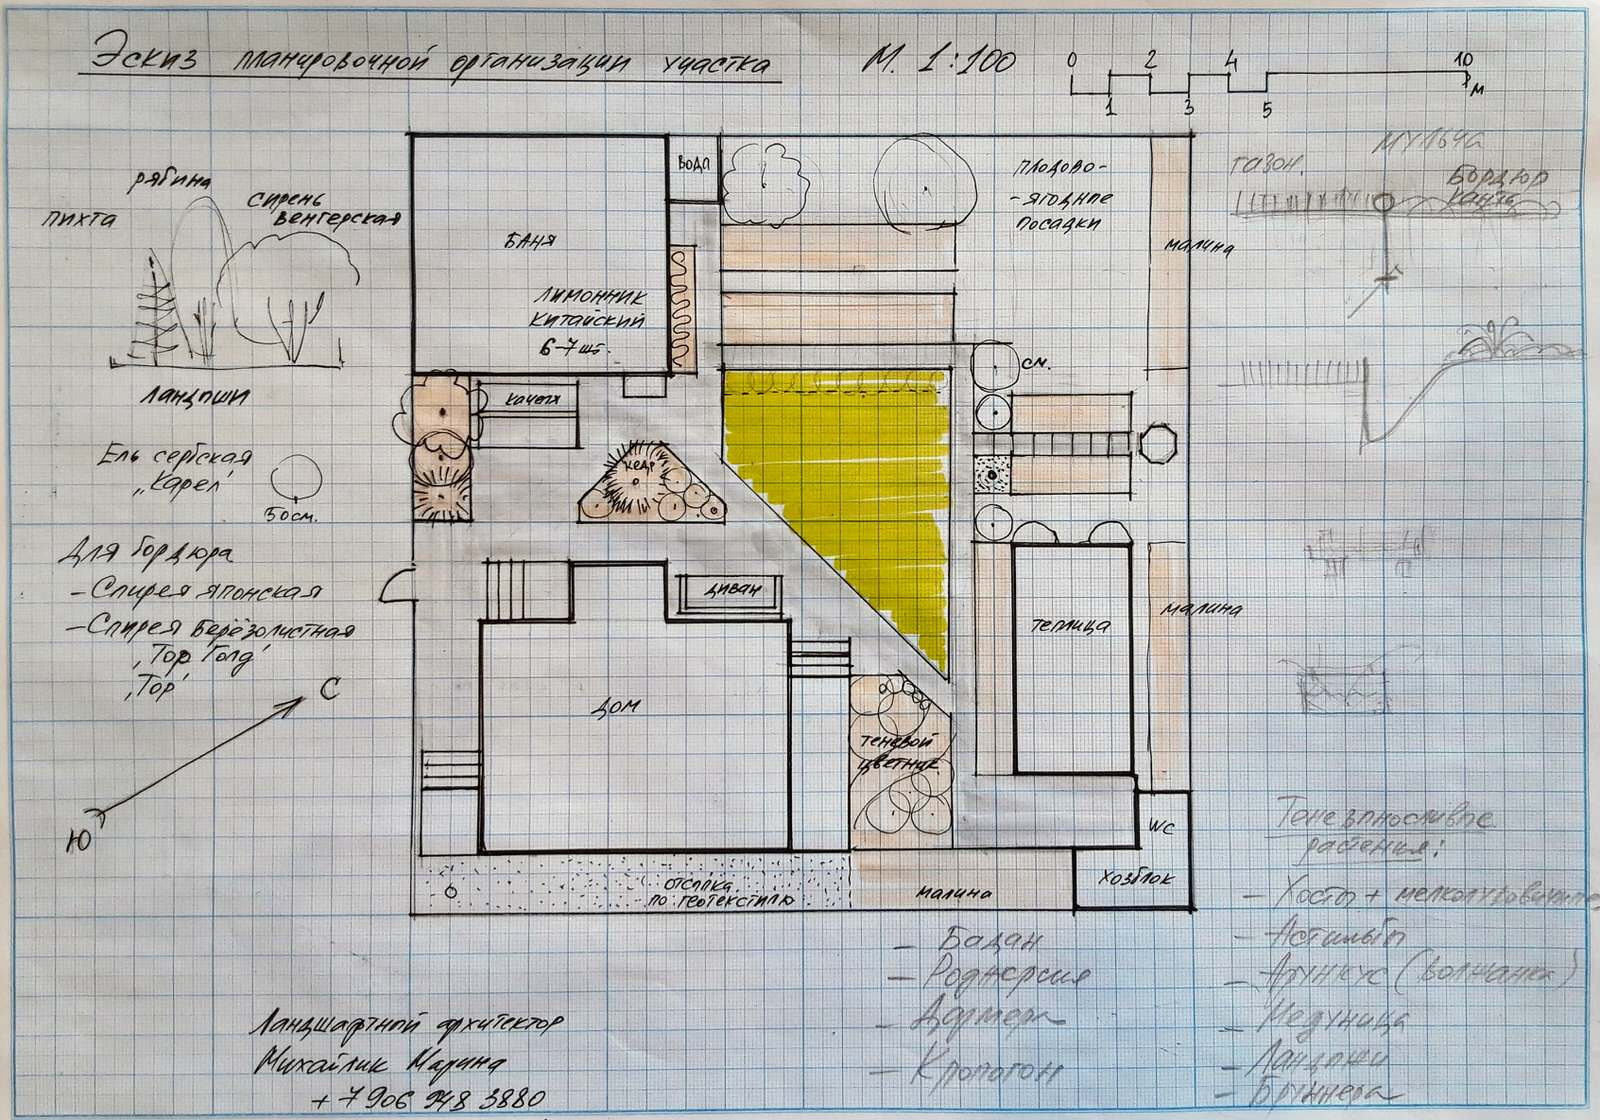 Эскиз планировочной организации участка
М. 1:100
0 2 4 10
1 3 5 м
рябина
пихта
сирень
венгерская
Ландыши
Ель сербская
„Карел‘
50см.
Для бордюра
- Спирея японская
- Спирея Берёзолистная
‚Тор Голд‘
‚Тор‘
С
Ю
БАНЯ
Лимонник
Китайский
6-7 шт.
ВОДА
качели
КЕДР
диван
ДОМ
Плодово-
-ягодные
посадки
малина
см.
малина
Теплица
Теневой
цветник
WC
хозблок
малина
отсыпка
по геотекстилю
газон.
мульча
Бордюр
кантъ
Теневыносливые
растения:
- Хосты + мелколуковичные
- Астильбы
- Арункус (волжанка)
- Медуница
- Ландыши
- Бруннера
- Бадан
- Роджерсия
- Дармера
- Клопогон
Ландшафтный архитектор
Михайлик Марина
+7 906 948 3880